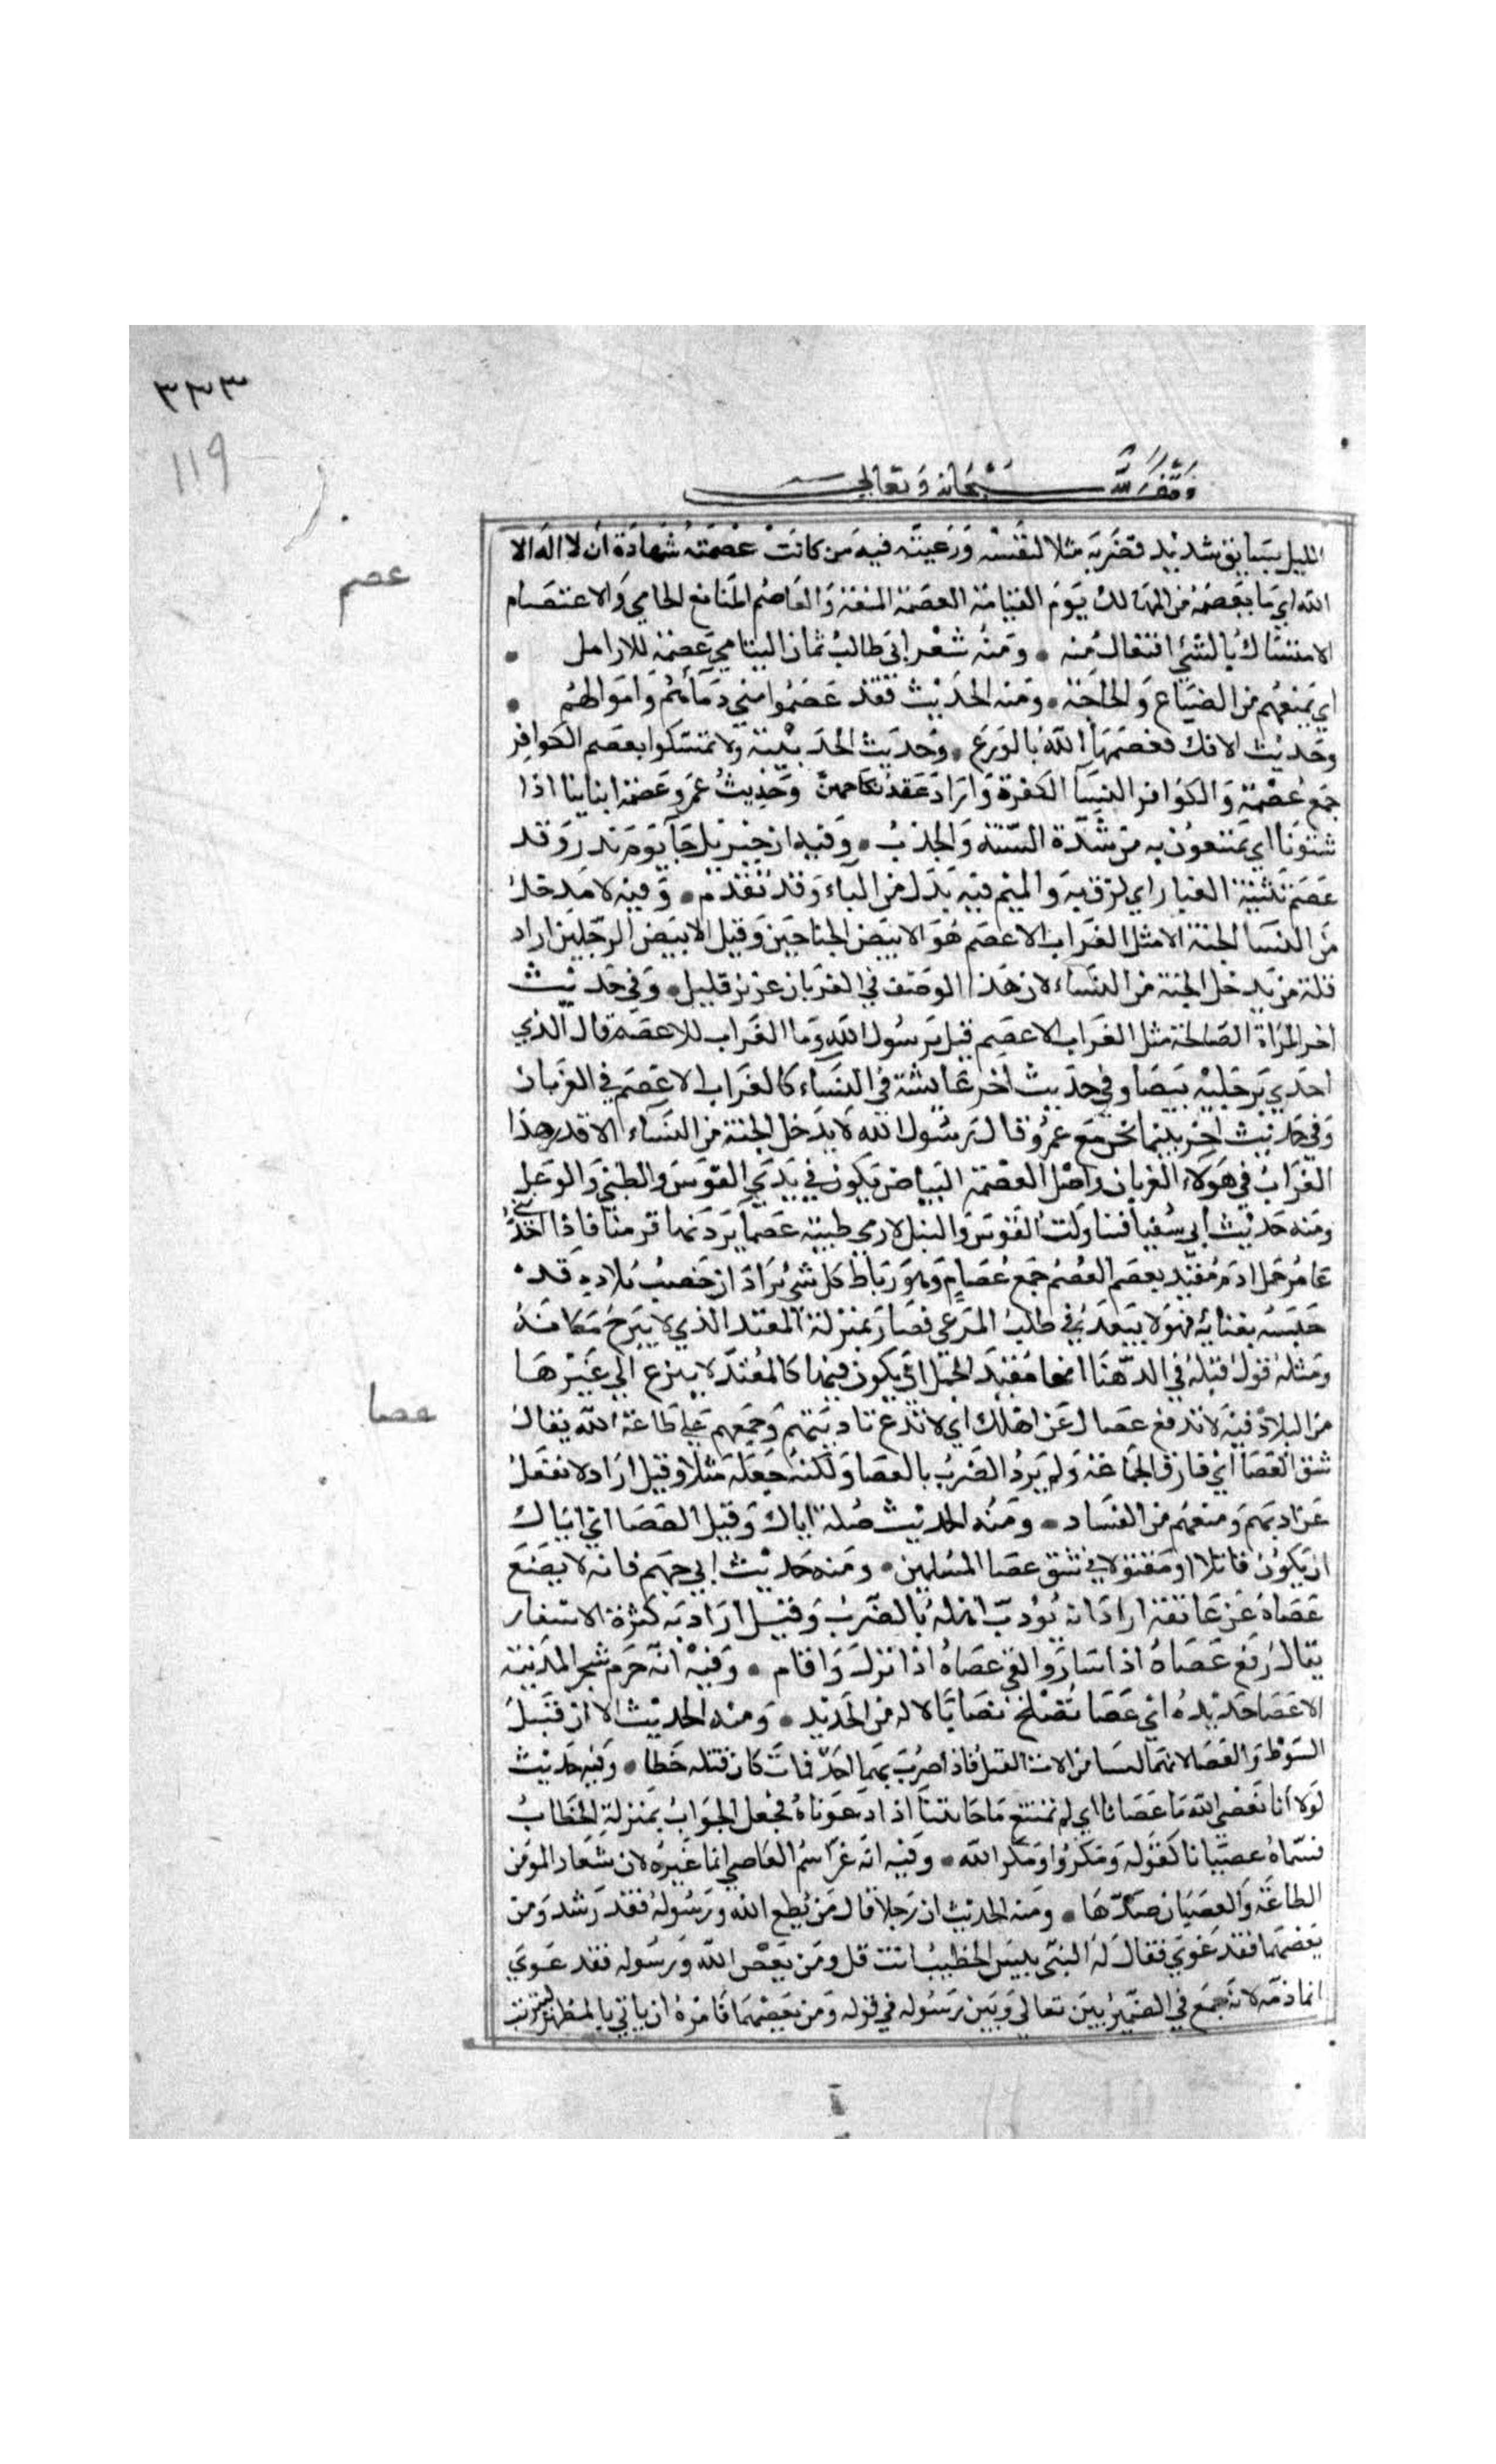 ٣٣٣
119
وقف لله سبحانه وتعالى
الليل بسايق شديد فضربه مثلا لنفسه ورعيته فيه من كانت عصمته شهادة ان لا اله الا
عصم
الله اي ما يعصمه من المهالك يوم القيامة العصمة المنعة والعاصم المانع الحامي والاعتصام
الامتساك بالشي افتعال منه • ومنه شعر ابي طالب ثمال اليتامي عصمة للارامل •
اي يمنعهم من الضياع والحاجة • ومنه الحديث فقد عصموا مني دمآءهم واموالهم •
وحديث الافك فعصمها الله بالورع • وحديث الحديبية ولا تمسكوا بعصم الكوافر
جمع عصمة والكوافر النسآ الكفرة واراد عقد نكاحهن وحديث عمر وعصمة ابناينا اذا
شتونا اي يمتنعون به من شدة السنة والجدب • وفيه ان جبريل جآ يوم بدر وقد
عصم ثنيته الغبار اي لزق به والميم فيه بدل من البآء وقد تقدم • وفيه لا يدخل
من النسا الجنة الا مثل الغراب الاعصم هو الابيض الجناحين وقيل الابيض الرجلين اراد
قلة من يدخل الجنة من النساء لان هذا الوصف في الغربان عزيز قليل • وفي حديث
اخر المراة الصالحة مثل الغراب الاعصم قيل يرسول الله وما الغراب للاعصم قال الذي
احدي رجليه بيضا وفي حديث اخر عايشة في النسآء كالغراب الاعصم في الغربان
وفي حديث اخر بينما نحن مع عمرو قال رسول الله لا يدخل الجنة من النسآء الا قدر هذا
الغراب في هولاء الغربان واصل العصمة البياض يكون في يدي الفوس والظبي والوعل
ومنه حديث ابي سفيا فتناولت القوس والنبل لارمي ظبية عصما يرد بها قرمنا فاذا اخذ
عامر حمل ادم مقيد بعصم العصم جمع عصام وهو رباط كل شي يراد ان خصب بلاده قد
حبسه بفنايه فهو لا يبعد في طلب المرعي فصار بمنزلة المقيد الذي لا يبرح مكانه
ومثله قول قيلة في الدهنا انها مقيد الجمل اي يكون فيها كالمقيد لا ينزع الي غيرها
عصا
من البلاد فيه لا تدفع عصال عن اهلك اي لا تدع تاديبهم وجمعهم علي طاعة الله يقال
شق العصا اي فارق الجماعة ولم يرد الضرب بالعصا ولكنه جعله مثلا وقيل اراد لا تغفل
عن ادبهم ومنعهم من الفساد • ومنه الحديث صلة اياك وقيل العصا اي اياك
ان يكون قاتلا او مقتولا في شق عصا المسلمين • ومنه حديث ابي جهم فانه لا يضع
عصاه عن عاتقه اراد انه يودب اهله بالضرب وقيل اراد به كثرة الاسفار
يقال رفع عصاه اذا سار والقي عصاه اذا نزل واقام • وفيه انه حرم شجر المدينة
الا عصا حديده اي عصا تصلح نصابا لاله من الحديد • ومنه الحديث الا ان قتيل
السوط والعصا لانهما ليسا من الات القتل فاذا ضرب بهما احد فمات كان قتله خطا • وفيه حديث
لولا أنا نعصي الله ما عصانا اي لم يمتنع ما اذا دعوناه فجعل الجواب بمنزلة الخطاب
فسماه عصيانا كقوله ومكروا ومكر الله • وفيه انه غير اسم العاصي انما غيره لان شعار المومن
الطاعة والعصيان ضدها • ومنه الحديث ان رجلا قال من يطع الله ورسوله فقد رشد ومن
يعصهما فقد غوي فقال له النبي بليس الخطيب انت قل ومن يعص الله ورسوله فقد غوي
انما ذمه لانه جمع في الضمير بين تعالي وبين رسوله في قوله ومن يعصهما فامره ان ياتي بالمظهر ليترتب